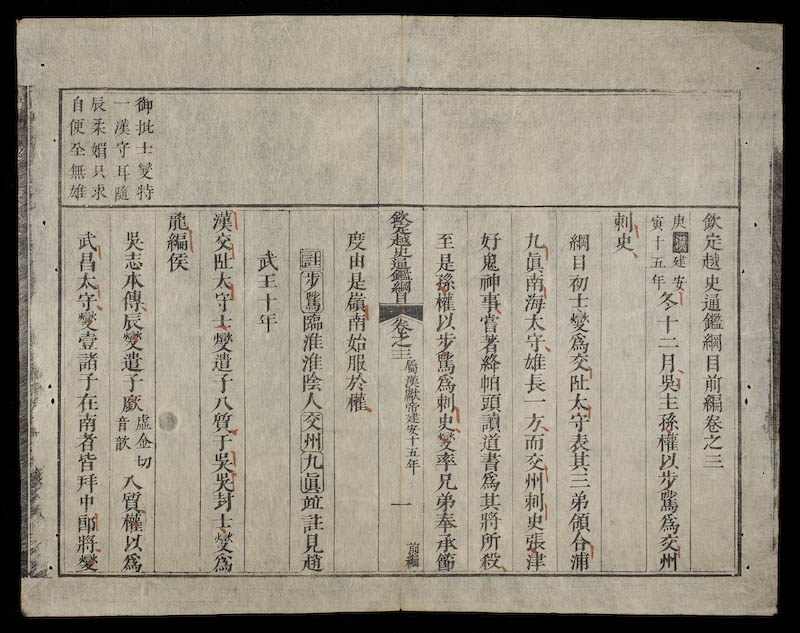 欽定越史通鑑綱目前編卷之三
庚漢建安
寅十五年冬十二月吳主孫權以步騭爲交州
刺史
綱目初士燮爲交趾太守表其三弟領合浦
九眞南海太守雄長一方而交州刺史張津
好鬼神事嘗著絳帕頭讀道書爲其將所殺
至是孫權以步騭爲刺史燮率兄弟奉承節
欽定越史通鑑綱目 卷之三 屬漢獻帝建安十五年 一 前編
度由是嶺南始服於權
註步騭臨淮淮陰人交州九眞竝註見趙
武王十年
漢交趾太守士燮遣子入質于吳吳封士燮爲
龍編侯
吳志本傳辰燮遣子廞虛金切
音歆入質權以爲
武昌太守燮壹諸子在南者皆拜中郎將燮
御批士燮特
一漢守耳隨
辰柔媚只求
自便至無雄